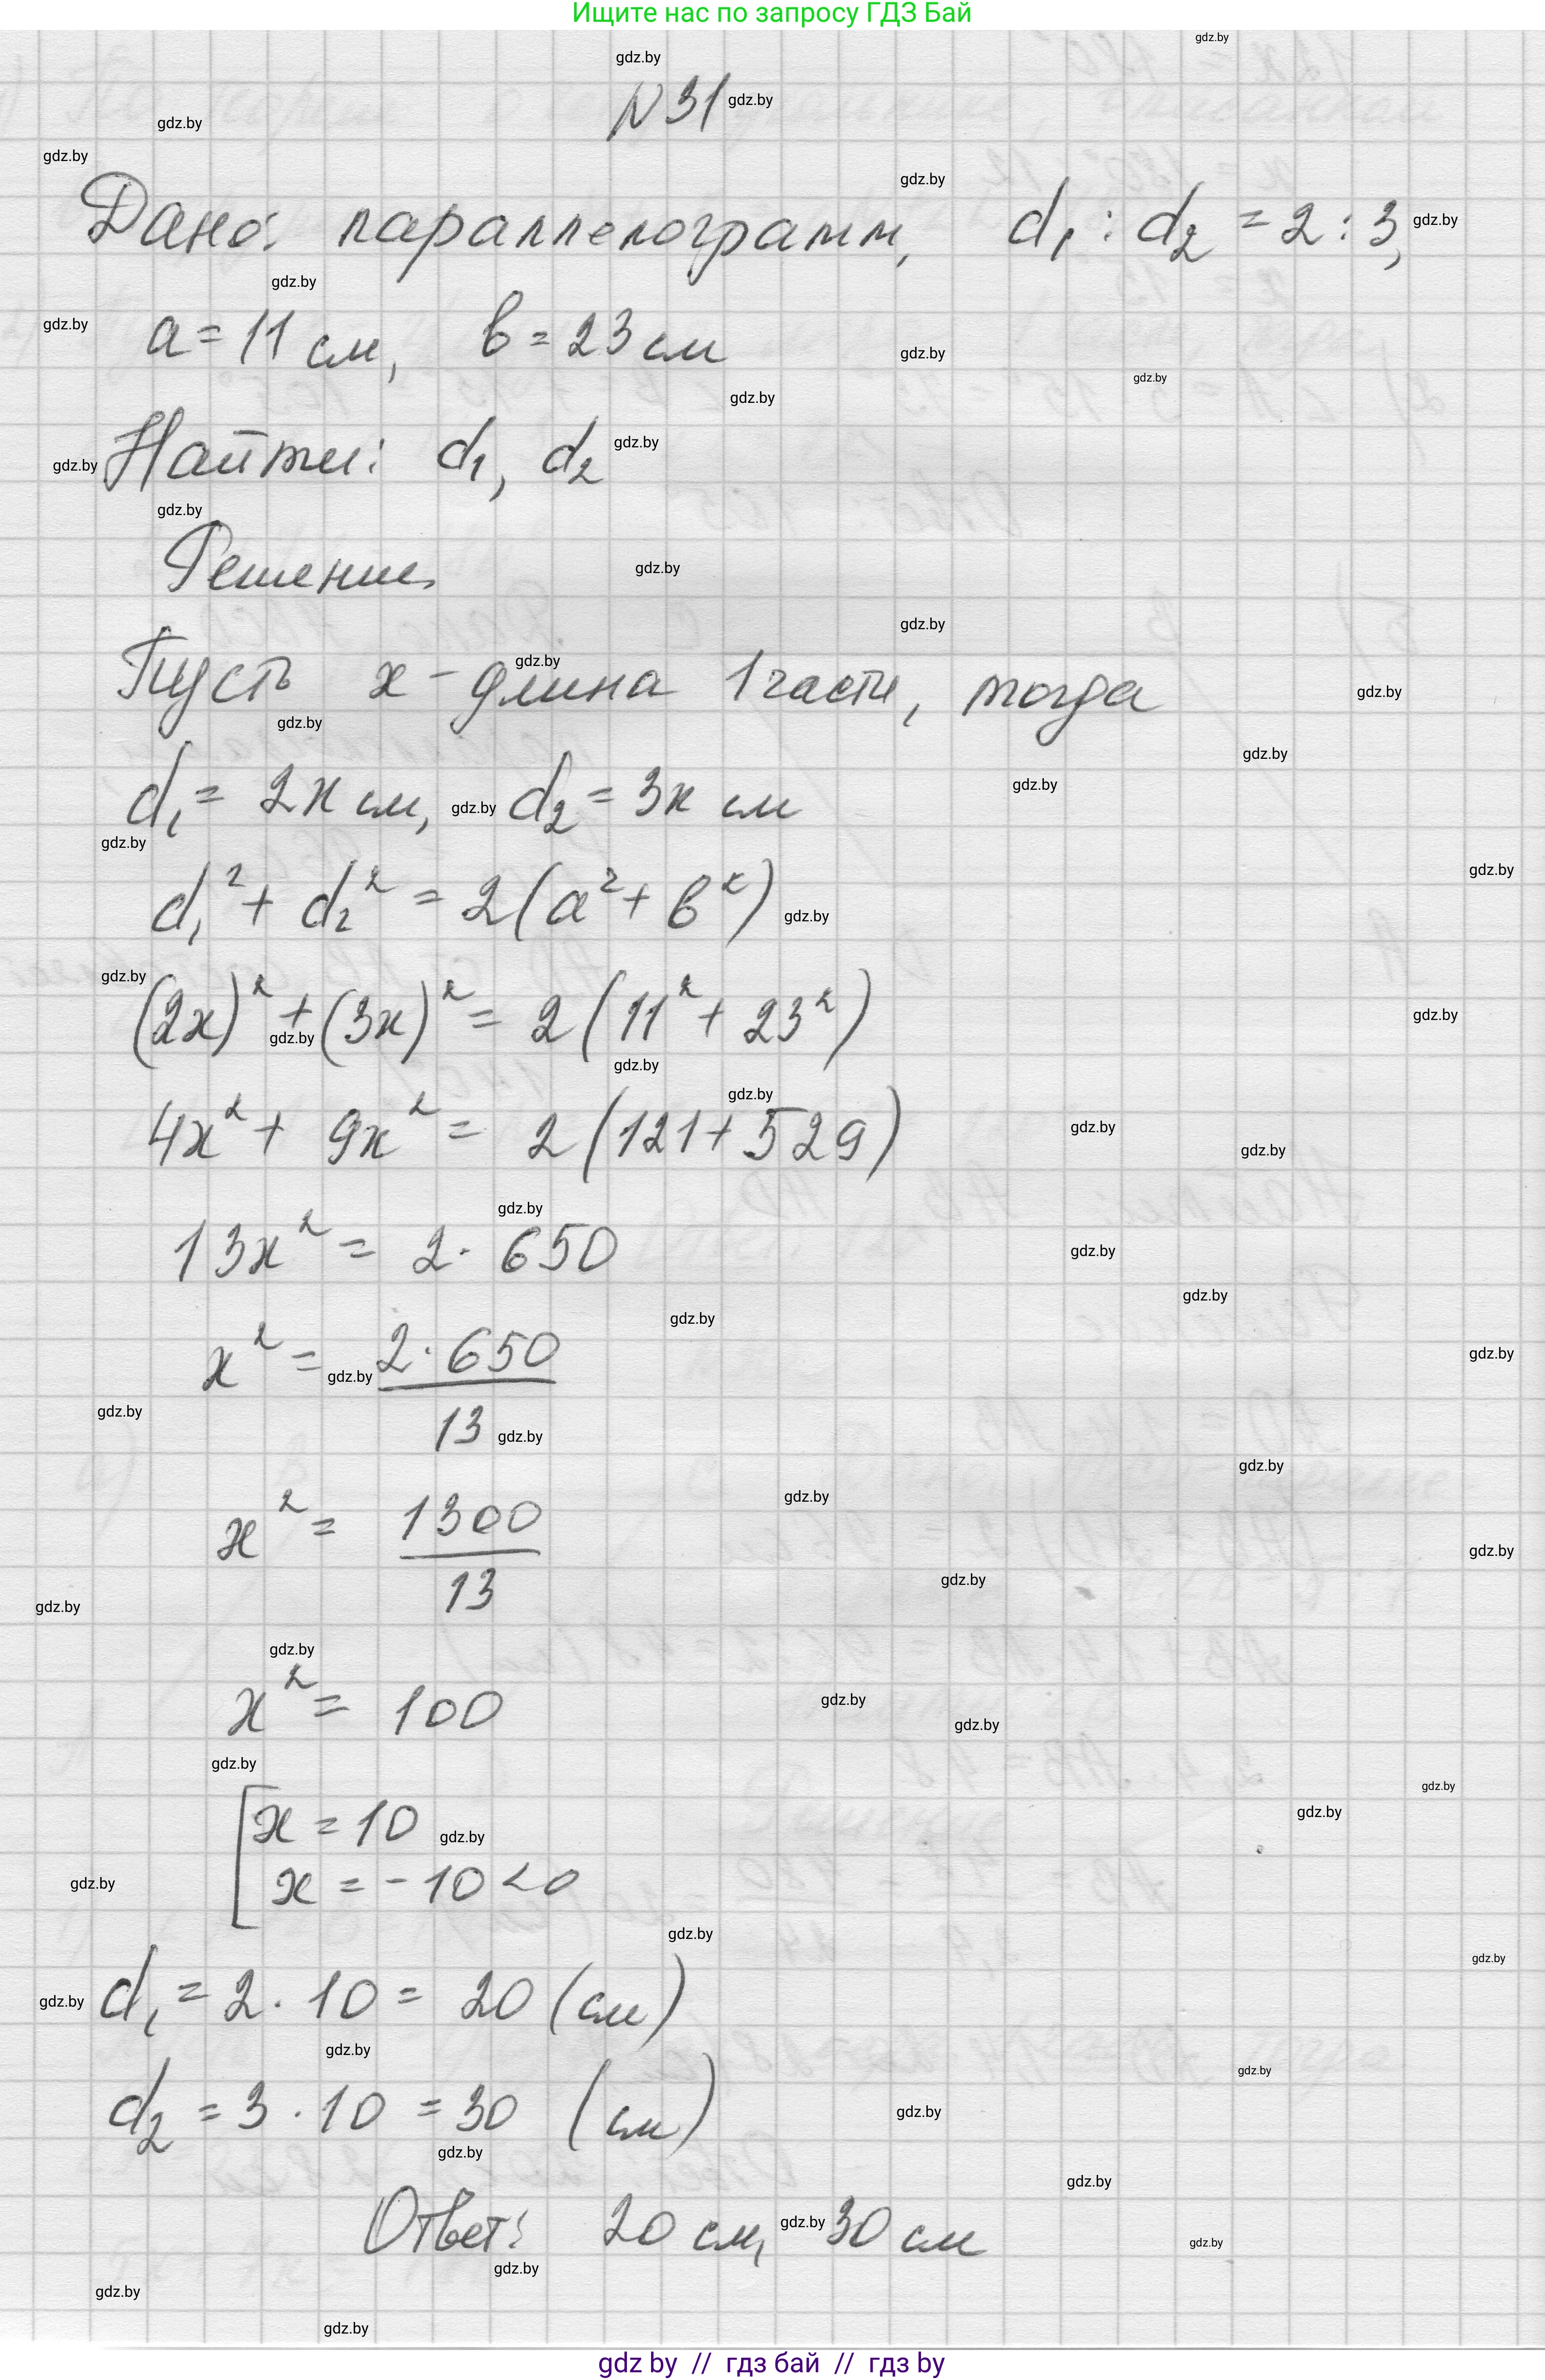 Ищите нас по запросу ГДЗ Бай
№31
Дано: параллелограмм, d₁ : d₂ = 2 : 3,
a = 11 см, b = 23 см
Найти: d₁, d₂
Решение
Пусть x - длина 1 части, тогда
d₁ = 2x см, d₂ = 3x см
d₁² + d₂² = 2(a² + b²)
(2x)² + (3x)² = 2(11² + 23²)
4x² + 9x² = 2(121 + 529)
13x² = 2 · 650
x² = 2 · 650 / 13
x² = 1300 / 13
x² = 100
[ x = 10
x = -10 < 0
d₁ = 2 · 10 = 20 (см)
d₂ = 3 · 10 = 30 (см)
Ответ: 20 см, 30 см
gdz by // гдз бай // гдз by